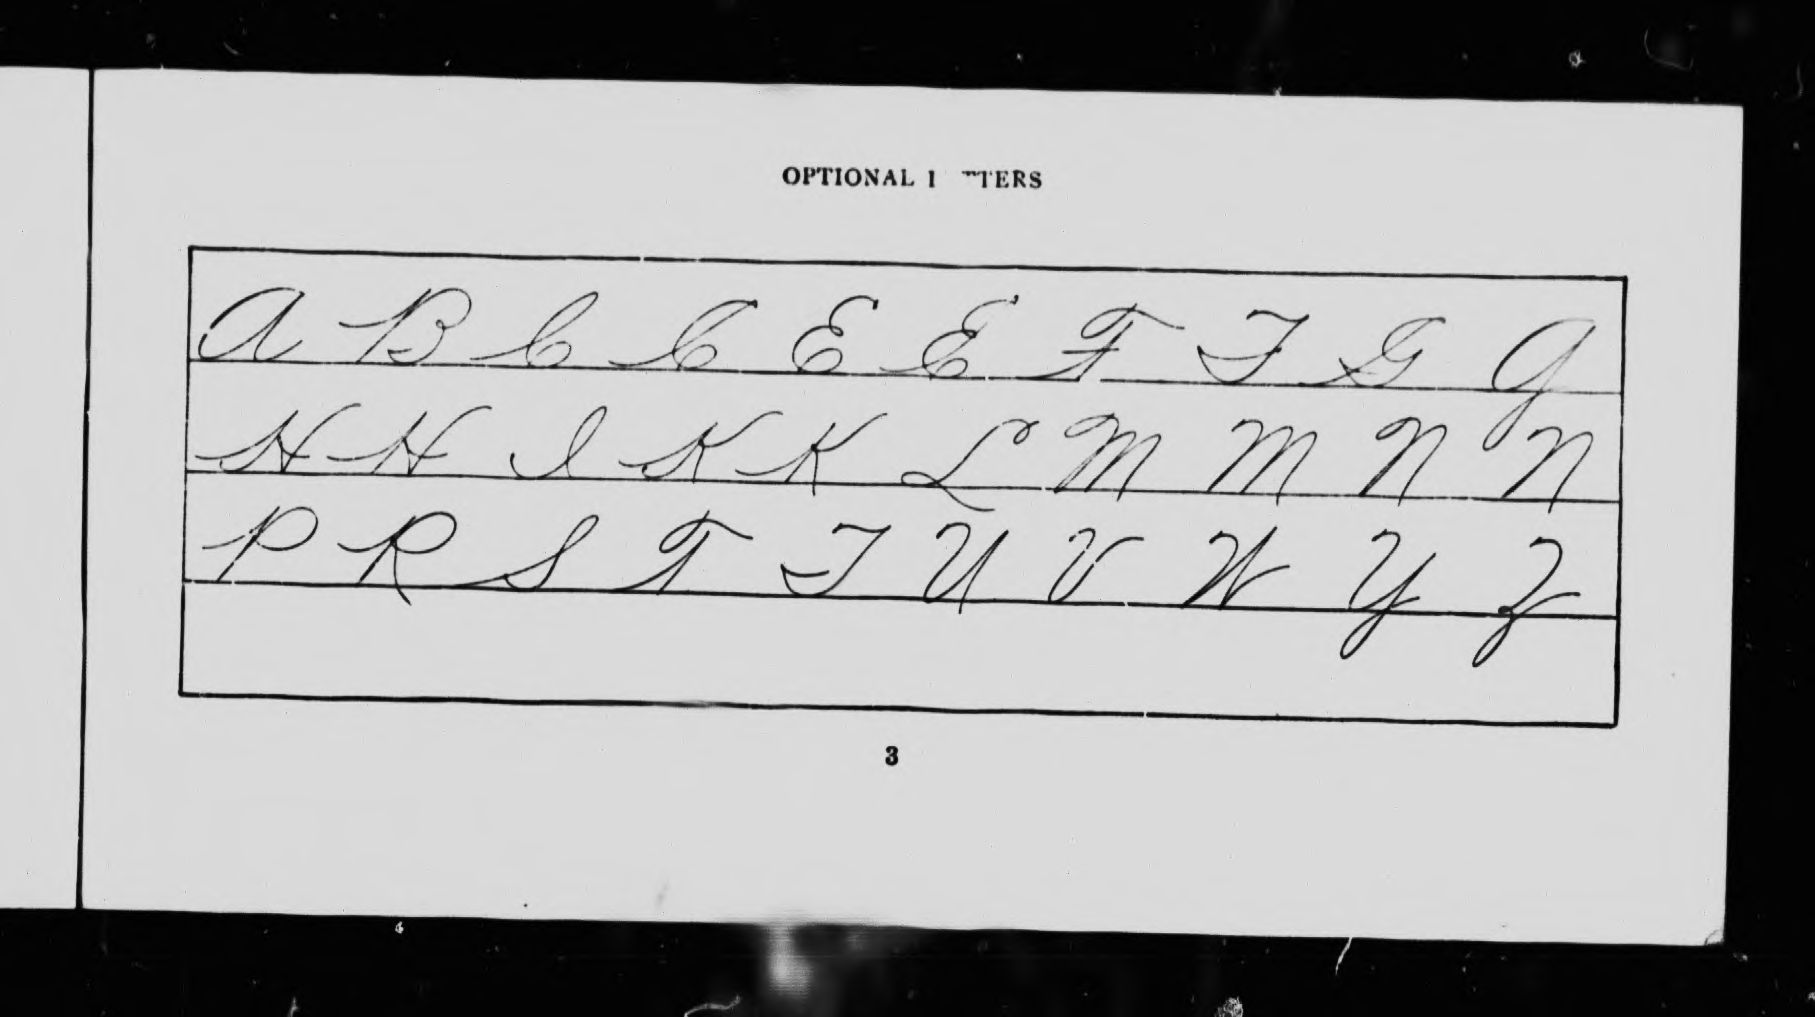 OPTIONAL LETTERS
A B C C E E F F G G
H H I K K L M M N N
P R S T T U V W Y Z
3